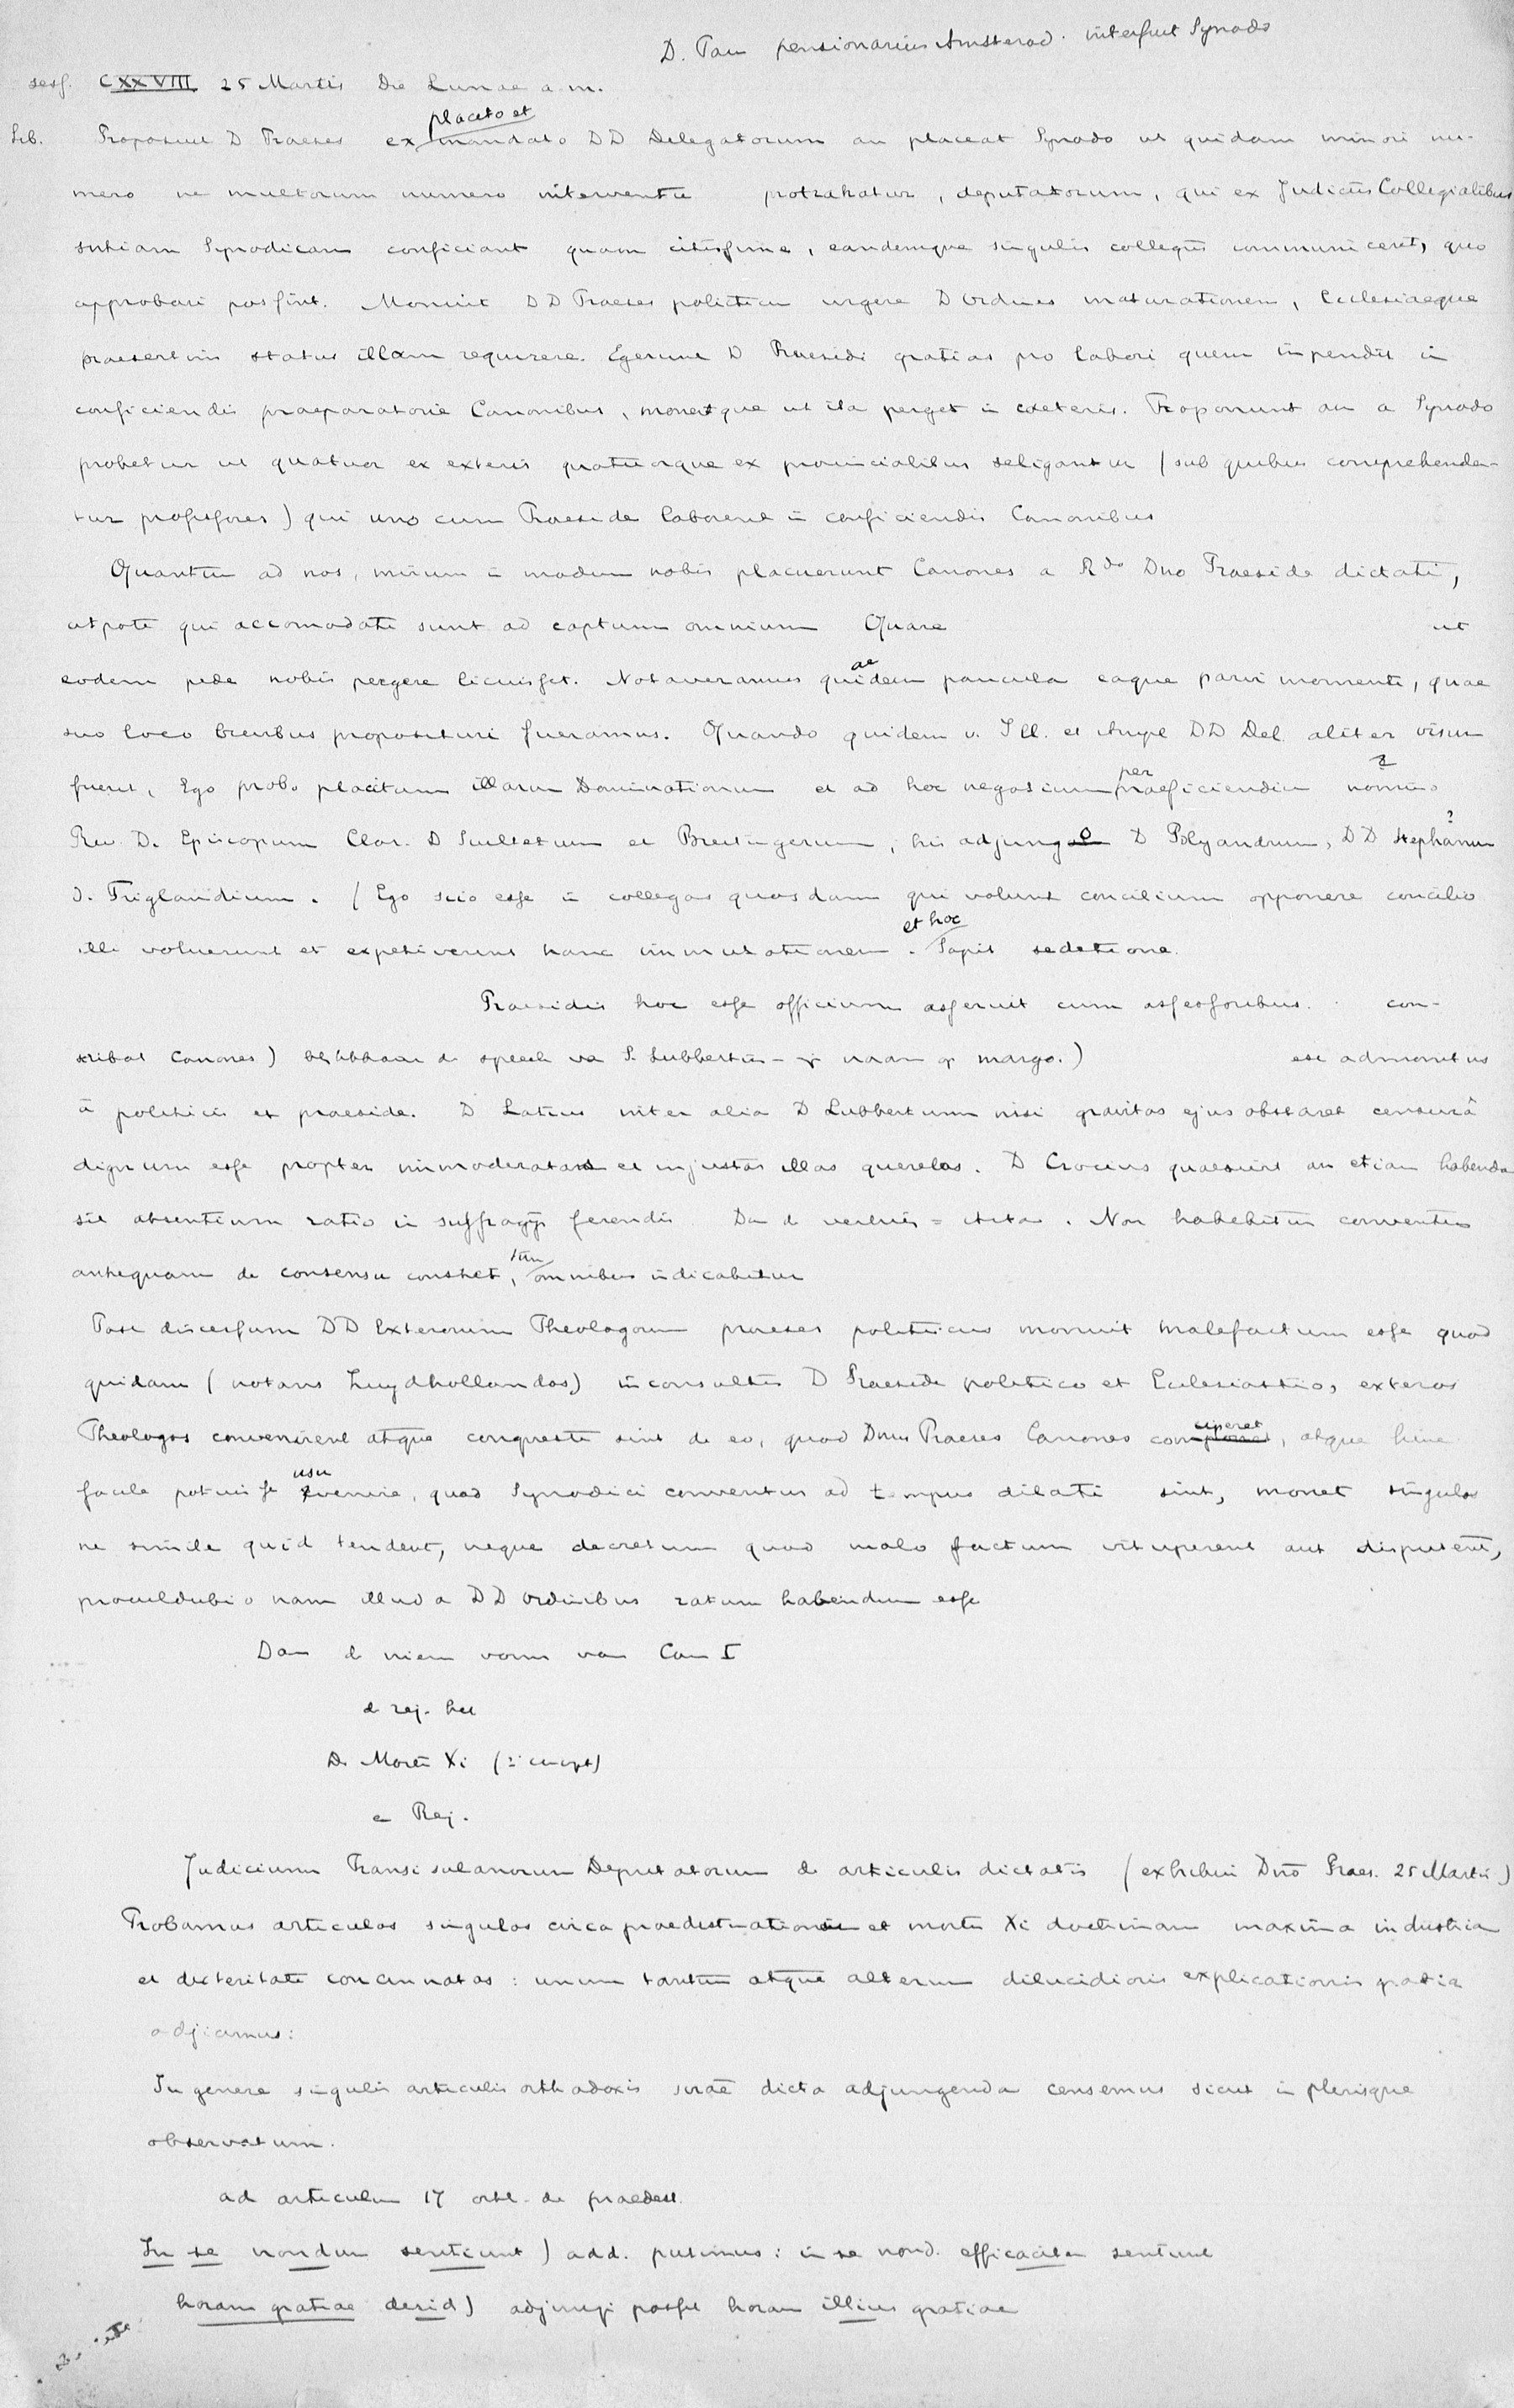 D. Pau pensionarius Amsterod. interfuit Synodo
sess. CXXVIII 25 Martis Die Lunae a.m.
placeto et
Lib. Proposuit D Praeses ex mandato DD Delegatorum an placeat Synodo ut quidam minori nu-
mero ne multorum numero interventu protrahatur, deputatorum, qui ex Judiciis Collegialibus
sntiam Synodicam conficiant quam citissime, eandemque singulis collegiis communicent, quo
approbari possint. Monuit DD Praeses politicu urgere D Ordines maturationem, Ecclesiaeque
praesertim status illam requirere. Egerunt D Praesidi gratias pro labori quem impendit in
conficiendis praeparatorie Canonibus, monetque ut ita perget in caeteris. Proponunt an a Synodo
probetur ut quatuor ex exteris quatuorque ex provincialibus seligantur (sub quibus comprehenden-
tur professores) qui uno cum Praeside laborent in conficiendis Canonibus
Quantum ad nos, mirum in modum nobis placuerunt Canones a Rdo Dno Praeside dictati,
utpote qui accomodati sunt ad captum omnium Quare ut
ae
eodem pede nobis pergere licuisset. Notaveramus quidem paucula eaque parvi momenti, quae
suo loco brevibus proposituri fueramus. Quando quidem v. Ill. et Ampl DD Del. aliter visum
per
fuerit, Ego probo placitum illarum Dominationum et ad hoc negotium praeficiendum nomino
?
Rev. D. Episcopum Clar. D Scultetum et Breitingerum, his adjungo D Polyandrum, DD Stephanum
D. Triglandium. (Ego scio esse in collegas quosdam qui volunt concilium opponere concilio
et hoc
illi voluerunt et expetiverunt hanc immutationem. Sapit seditione.
Praesidis hoc esse officium asseruit cum assessoribus. con-
scribat Canones) speech va S. Lubbertus - naam op margo.) est admonitus
a politicis et praeside. D Latius inter alia D Lubbertum nisi gravitas ejus obstaret censurâ
dignum esse propter immoderatas et injustas illas querelas. D Crocius quaesivit an etiam habenda
sit absentium ratio in suffragijs ferendis Dan d verluis = Acta. Non habebitur conventus
tum
antequam de consensu constet, omnibus indicabitur
Post discessum DD Exterorum Theologorum praeses politicus monuit malefactum esse quod
quidam (notans Zuydhollandos) inconsultis D Praeside politico et Ecclesiastico, exteros
ciperet
Theologos convenirent atque conquesti sint de eo, quod Dnus Praeses Canones componeret, atque hinc
usu
facile potuisse evenire, quod Synodici conventus ad tempus dilati sint, monet singulos
ne simile quid tendent, neque decretum quod malo factum vituperent aut disputent,
proculdubio nam illud a DD Ordinibus ratum habendum esse
Dan d niem vorm van Can I
d rej. her
D. Morte Xi
e Rej.
Judicium Transisulanorum Deputatorum de articulis dictatis (exhibui Dno Praes. 25 Martis)
Probamus articulos singulos circa praedestinationem et mortis Xi doctrinam maxima industria
et dexteritate concinnatos: unum tantum atque alterum dilucidioris explicationis gratia
adjicimus:
In genere singulis articulis orthodoxis scrae dicta adjungenda censemus sicut in plerisque
observatum.
ad articulum 17 orth. de praedest.
In se nondum sentiunt) add. putimus: in se nond. efficaciter sentiunt
horam gratiae desid) adjungi posset horam illius gratiae